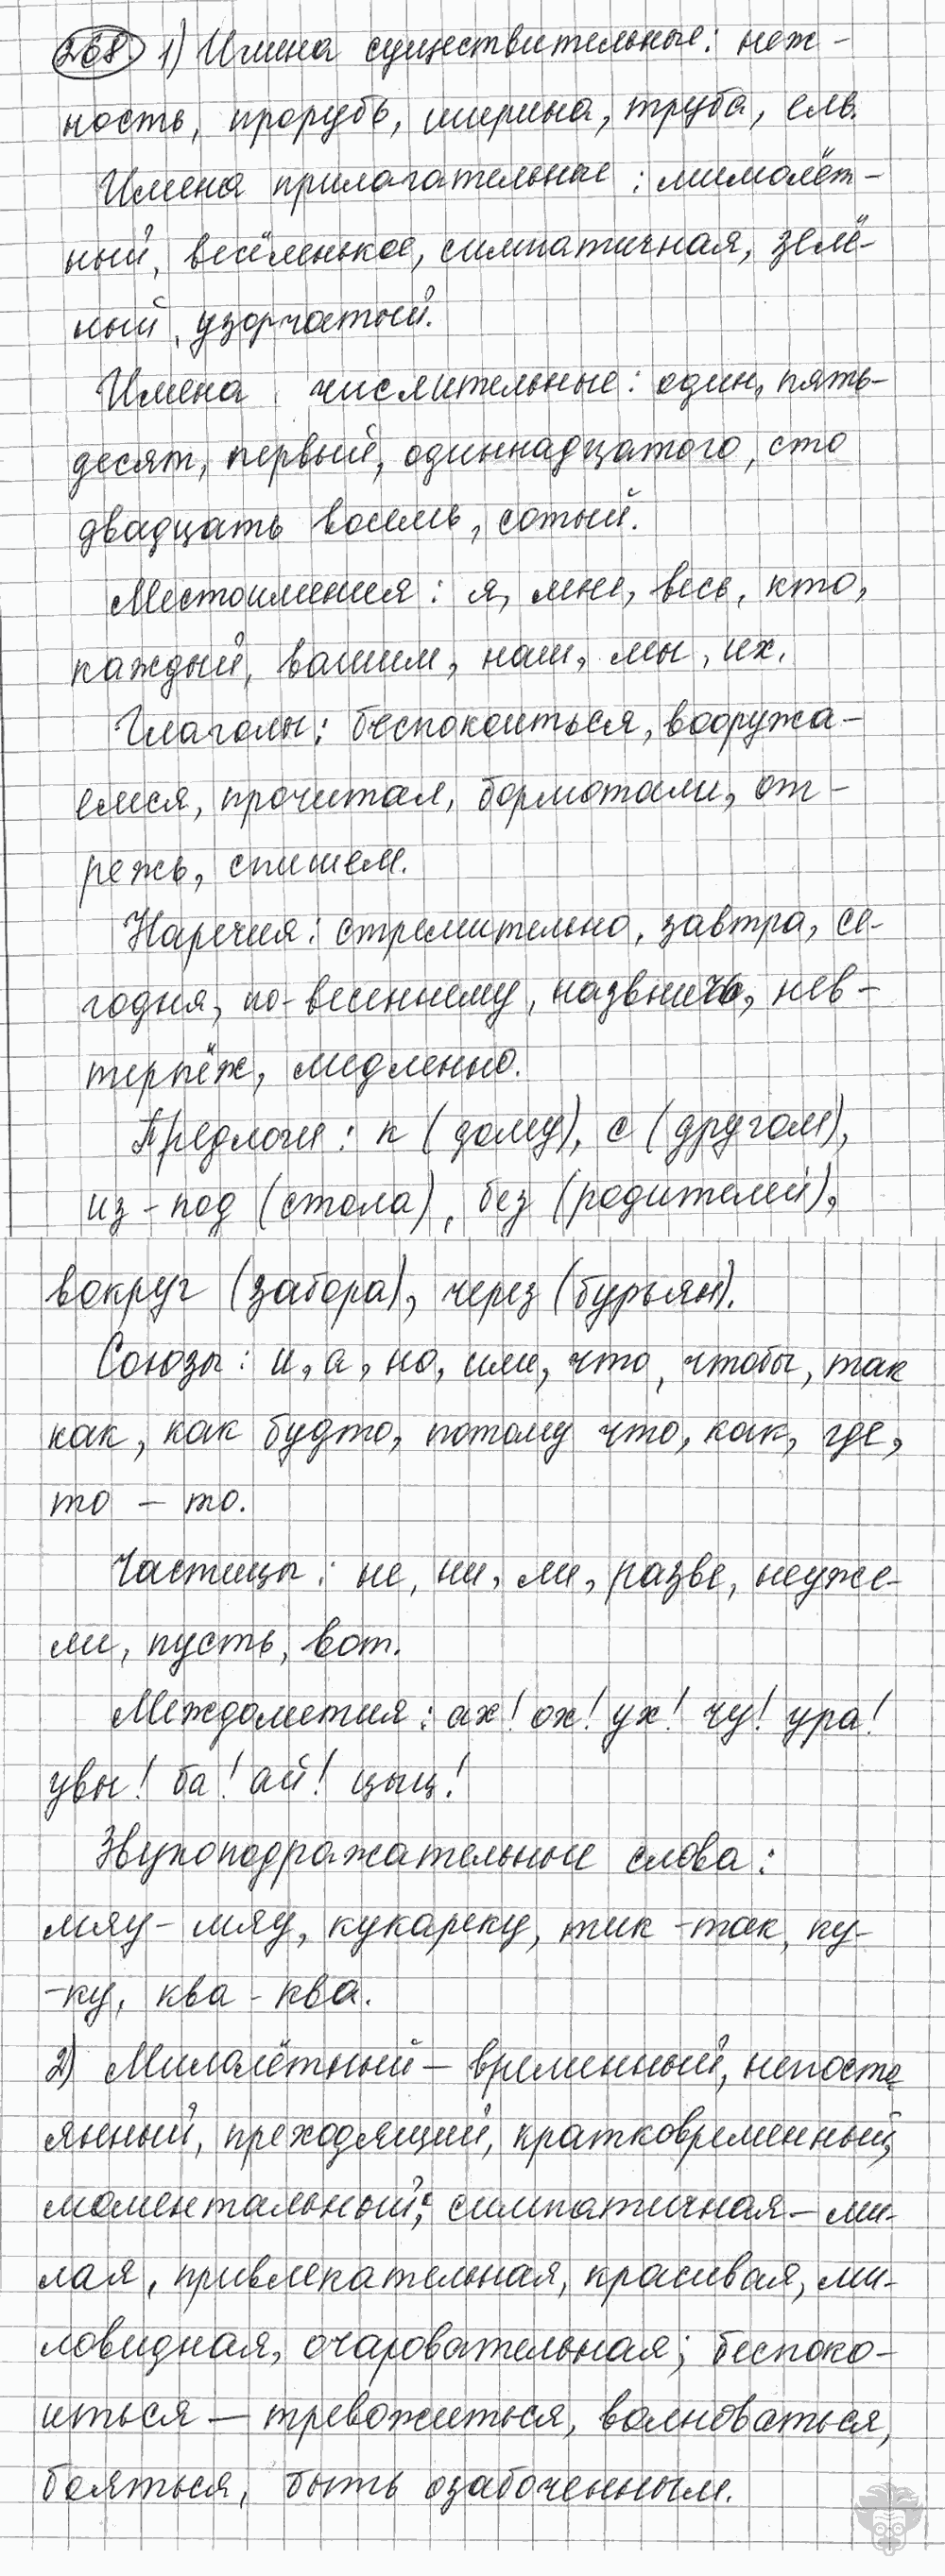 268. 1) Имена существительные: неж-
ность, прорубь, ширина, труба, ель.
Имена прилагательные: мимолёт-
ный, весёленькое, симпатичная, зелё-
ный, узорчатый.
Имена числительные: один, пять-
десят, первый, одиннадцатого, сто
двадцать восемь, сотый.
Местоимения: я, мне, весь, кто,
каждый, вашим, наш, мы, их.
Глаголы: беспокоиться, вооружа-
емся, прочитал, бормотали, от-
режь, спишем.
Наречия: стремительно, завтра, се-
годня, по-весеннему, навзничь, нев-
терпёж, медленно.
Предлоги: к (дому), с (другом),
из-под (стола), без (родителей),
вокруг (забора), через (бурьян).
Союзы: и, а, но, или, что, чтобы, так
как, как будто, потому что, как, где,
то - то.
Частицы: не, ни, ли, разве, неуже-
ли, пусть, вот.
Междометия: ах! ох! ух! чу! ура!
увы! ба! ай! цыц!
Звукоподражательные слова:
мяу-мяу, кукареку, тик-так, ку-
-ку, ква-ква.
2) Мимолётный – временный, непосто
янный, преходящий, кратковременный,
моментальный; симпатичная – ми-
лая, привлекательная, красивая, ми-
ловидная, очаровательная; беспоко-
иться – тревожиться, волноваться,
бояться, быть озабоченным.